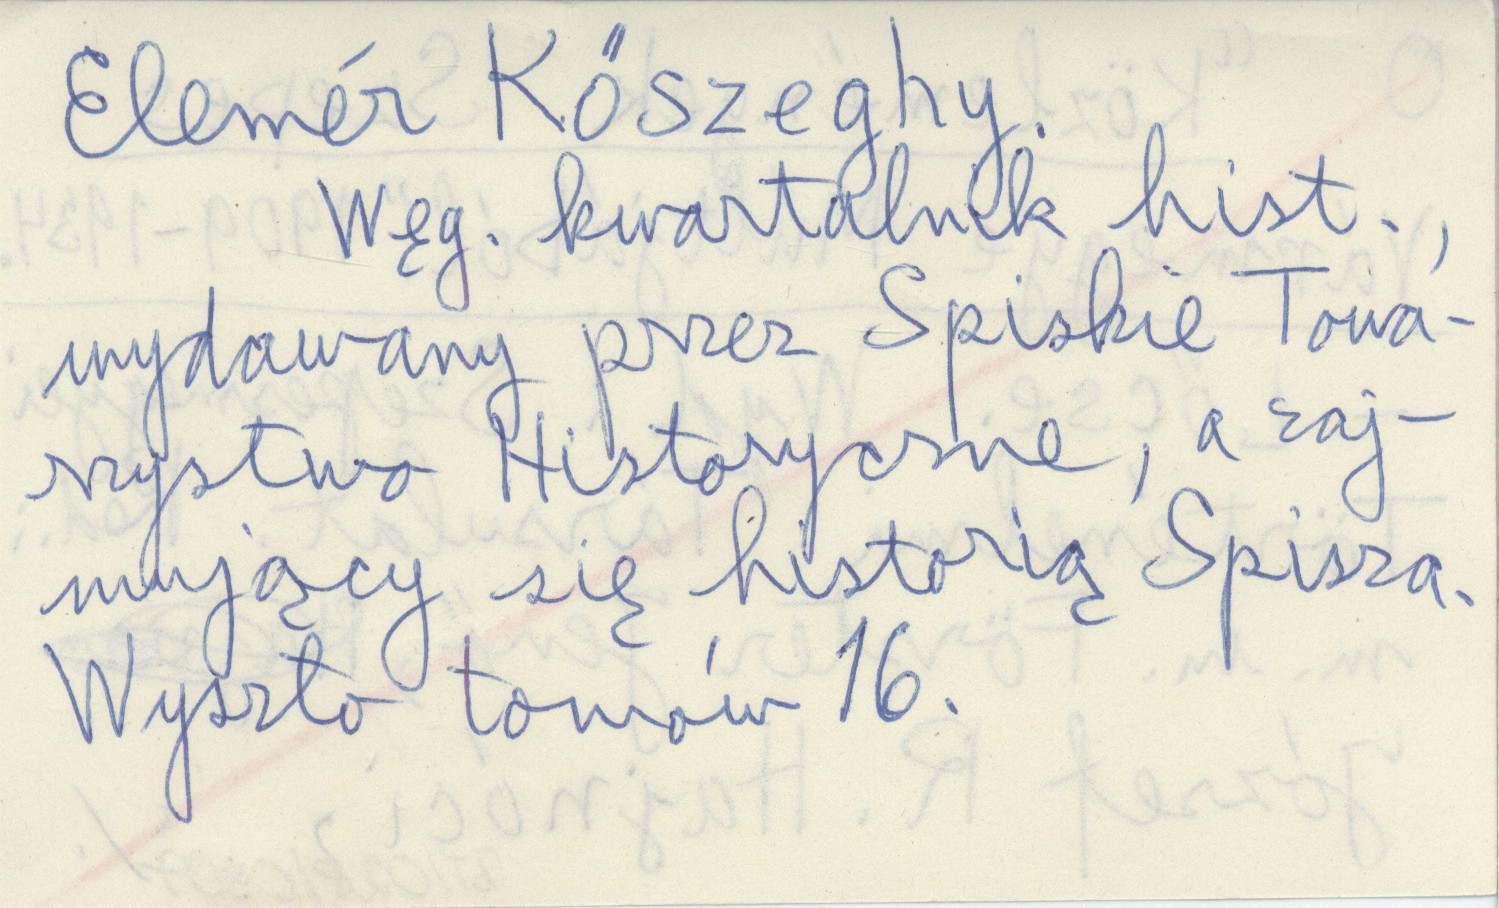 Elemér Kőszeghy.
Węg. kwartalnik hist.,
wydawany przez Spiskie Towa-
rzystwo Historyczne, a zaj-
mujący się historią Spisza.
Wyszło tomów 16.